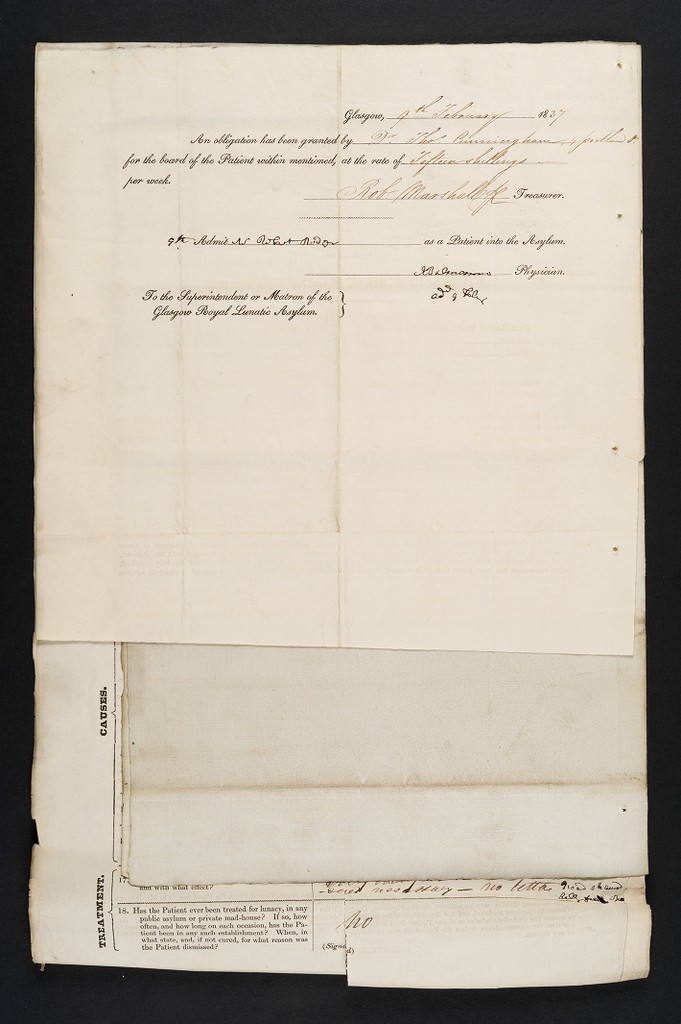 Glasgow, 9th February 1837
An obligation has been granted by Dr. Thos. Cunningham,
for the board of the Patient within mentioned, at the rate of Fifteen shillings
per week.
Rob. Marshall Treasurer.
9th Admit as a Patient into the Asylum.
Physician.
To the Superintendent or Matron of the
Glasgow Royal Lunatic Asylum.
CAUSES.
TREATMENT.
17.
and with what effect? necessary — no better
18. Has the Patient ever been treated for lunacy, in any
public asylum or private mad-house? If so, how
often, and how long on each occasion, has the Pa-
tient been in any such establishment? When, in
what state, and, if not cured, for what reason was
the Patient dismissed?
No
(Signed)